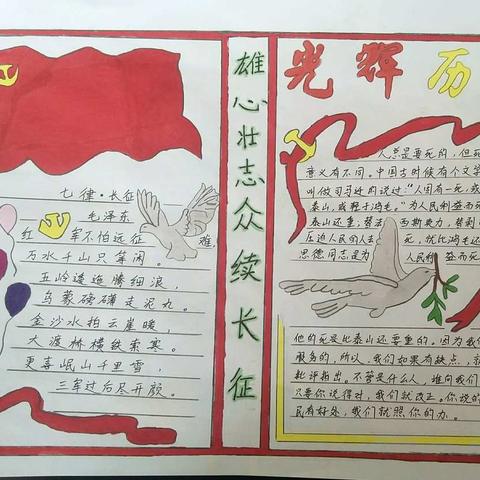 七律·长征
毛泽东
红军不怕远征难,
万水千山只等闲。
五岭逶迤腾细浪,
乌蒙磅礴走泥丸。
金沙水拍云崖暖,
大渡桥横铁索寒。
更喜岷山千里雪,
三军过后尽开颜。
雄心壮志众续长征
光辉历
人总是要死的,但死
意义有不同。中国古时候有个文学
叫做司马迁的说过"人固有一死,或
泰山,或轻于鸿毛。"为人民利益而死
泰山还重;替法西斯卖力,替剥
压迫人民的人去死,就比鸿毛还
思德同志是为人民利益而死
他的死是比泰山还要重的。因为我们
服务的,所以,我们如果有缺点,就
批评指出。不管是什么人,谁向我们
只要你说得对,我们就改正。你说的
民有好处,我们就照你的办。